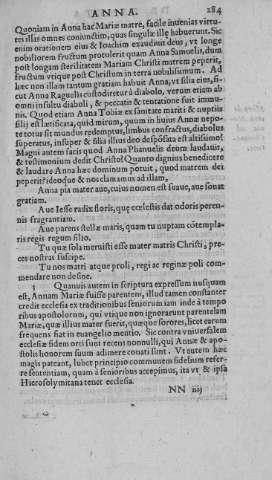 ANNA. 284
Quoniam in Anna hac Mariæ matre, facile inuenias virtu-
tes illas omnes coniunctim, quas singulæ illæ habuerunt. Sic
enim orationem eius & Ioachim exaudiuit deus, vt longe
nobiliorem fructum protulerit quam Anna Samuelis, dum
post longam sterilitatem Mariam Christi matrem peperit,
fructum vtique post Christum in terra nobilissimum. Ad
hæc non illam tantum gratiam habuit Anna, vt filia eius, si-
cut Anna Raguelis custodiretur à diabolo, verum etiam ab
omni insultu diaboli, & peccatis & tentatione fuit immu-
nis. Quod etiam Anna Tobiæ ex sanitate mariti & nuptiis
filij est lætificata, quid mirum, quum in huius Annæ nepo-
te totus sit mundus redemptus, limbus confractus, diabolus
superatus, insuper & filia illius deo desponsata est altissimo?
Magni autem facis quod Anna Phanuelis deum laudauit,
& testimonium dedit Christo? Quanto dignius benedicere
& laudare Anna hæc dominum potuit, quod matrem dei
peperit? ideoque & nos clamamus ad illam,
Anna pia mater aue, cuius nomen est suaue, aue sonat
gratiam.
Aue Iesse radix floris, quæ ecclesiis dat odoris peren-
nis fragrantiam.
Aue parens stellæ maris, quam tu nuptam contempla-
ris regis regum filio.
Tu quæ sola meruisti esse mater matris Christi, pre-
ces nostras suscipe.
Tu nos matri atque proli, regi ac reginæ poli com-
mendare non desine.
3 Quamuis autem in scriptura expressum nusquam
est, Annam Mariæ fuisse parentem, illud tamen constanter
credit ecclesia ex traditionibus seniorum iam inde à tempo
ribus apostolorum, qui vtique non ignorarunt parentelam
Mariæ, quæ illius mater fuerit, quæque sorores, licet earum
frequens fiat in euangelio mentio. Sic contra vniuersalem
ecclesiæ fidem orti sunt recens nonnulli, qui Annæ & apo-
stolis honorem suum adimere conati sunt. Vt autem hæc
magis pateant, lubet principio communem fidelium refer-
re sententiam, quam à senioribus accepimus, ita vt & ipsa
Hierosolymitana tenet ecclesia.
NN iiij